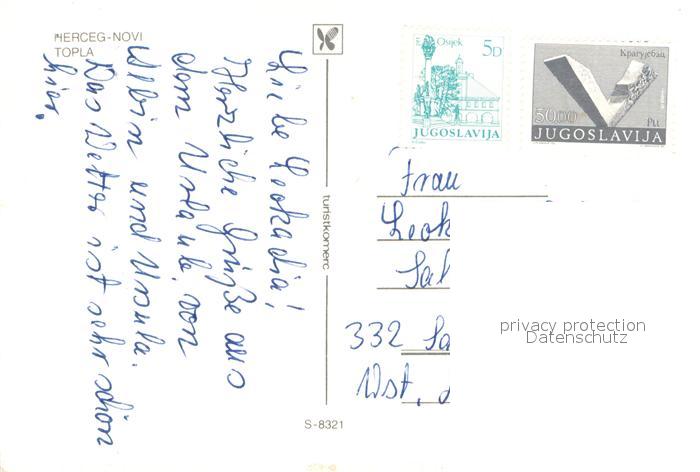 HERCEG-NOVI
TOPLA
Liebe Leokadia!
Herzliche Grüße aus
dem Urlaub, von
Albin und Ursula.
Das Wetter ist sehr schön
hier.
turistkomerc
S-8321
Osijek
5D
JUGOSLAVIJA
Крагујевац
50.00
JUGOSLAVIJA
Frau
Leok
Sal
332 Sa
Wst.
privacy protection
Datenschutz